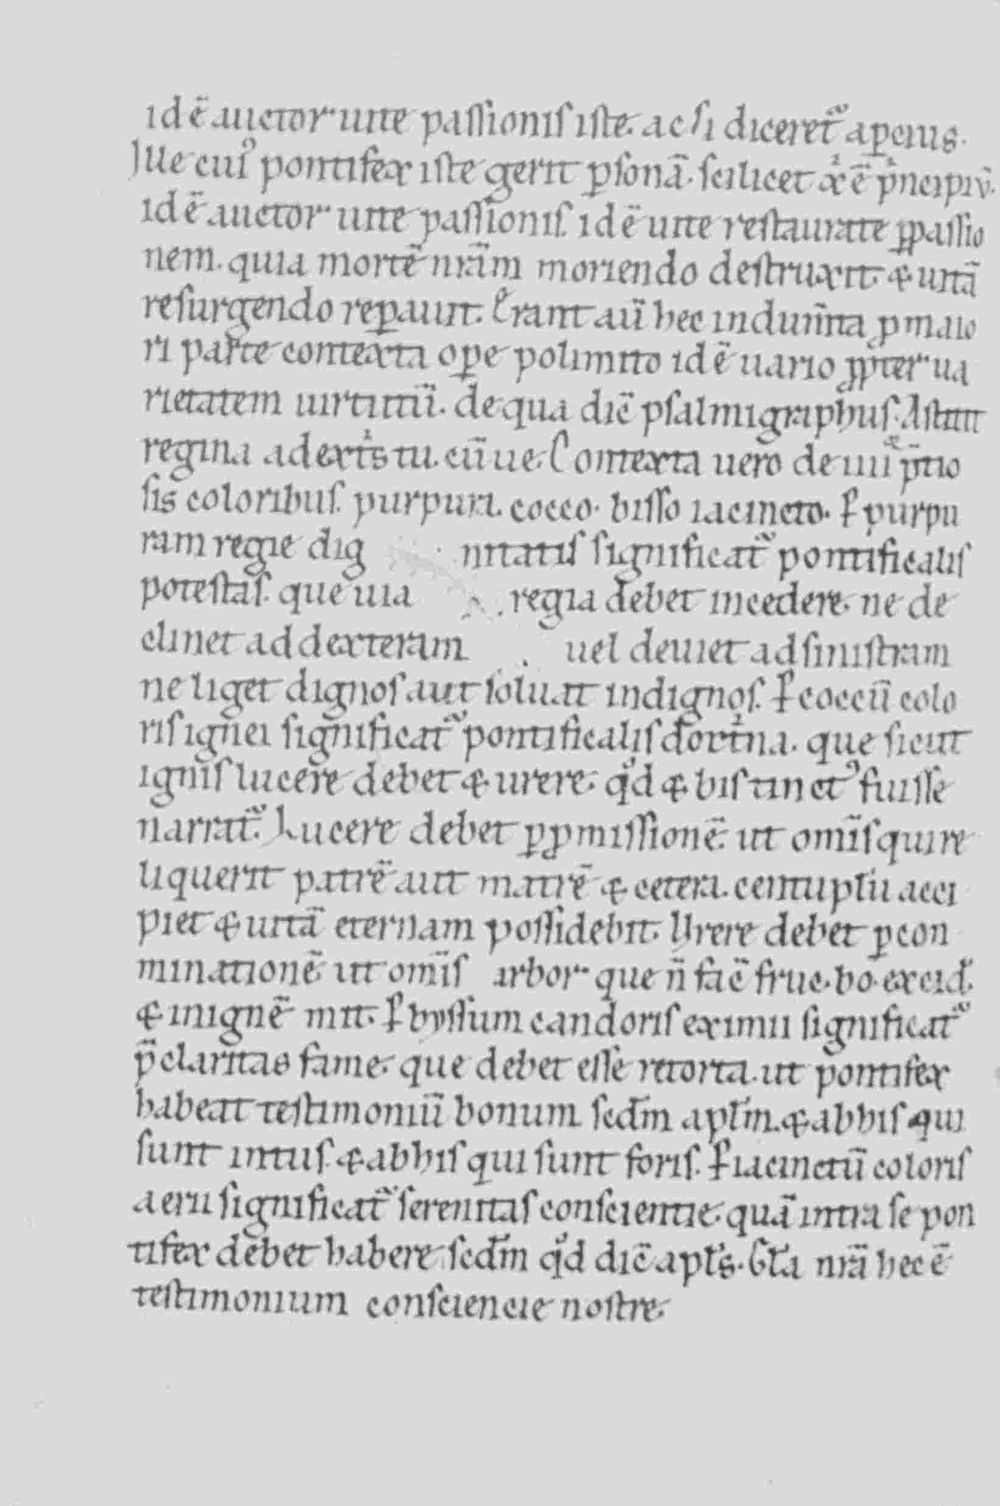 idē auctor uite passionis iste. ac si diceret᷑ ap̱cius.
Jlle cui᷒ pontifex iste gerit p̱sonā. scilicet xͥ ē pͥncipiū.
idē auctor uite passionis. idē uite restaurate ꝑpassio
nem. quia mortē nr̄am moriendo destruxit. & uitā
resurgendo rep̱auit. Erant aū hec indum̄ta ꝓ maio
ri parte contexta oꝑe polimito idē uario ꝓpter ua
rietatem uirtutū. de qua dic̄ psalmigraphus. Astitit
regina a dextͥs tu. cū ue. Contexta uero de iiii p̄tio
sis coloribus. purpura. cocco. bisso iacincto. ꝑ purpu
ram regie dig nitatis significat᷑ pontificalis
potestas. que uia regia debet incedere. ne de
clinet ad dexteram uel deuiet ad sinistram
ne liget dignos aut soluat indignos. ꝑ coccū colo
ris ignei significat᷑ pontificalis doctͥna. que sicut
ignis lucere debet & urere. qd̓ & bis tinct᷒ fuisse
narrat᷑. Lucere debet ꝑ ꝓmissionē. ut om̄is qui re
liquerit patrē aut matrē & cetera. centuplū acci
piet & uitā eternam possidebit. Urere debet ꝑ con
minationē ut om̄is arbor que n̄ fac̄ fruc. bo. excid᷑.
& in ignē mit. ꝑ byssum candoris eximii significat᷑
p̄claritas fame. que debet esse retorta. ut pontifex
habeat testimoniū bonum scd̄m apl̄m. & ab his qui
sunt intus. & ab his qui sunt foris. ꝑ iacinctū coloris
aerii significat᷑ serenitas conscientie. quā intra se pon
tifex debet habere scd̄m qd̓ dic̄ apl̄s. Gl̄a nr̄a hec ē
testimonium consciencie nostre.